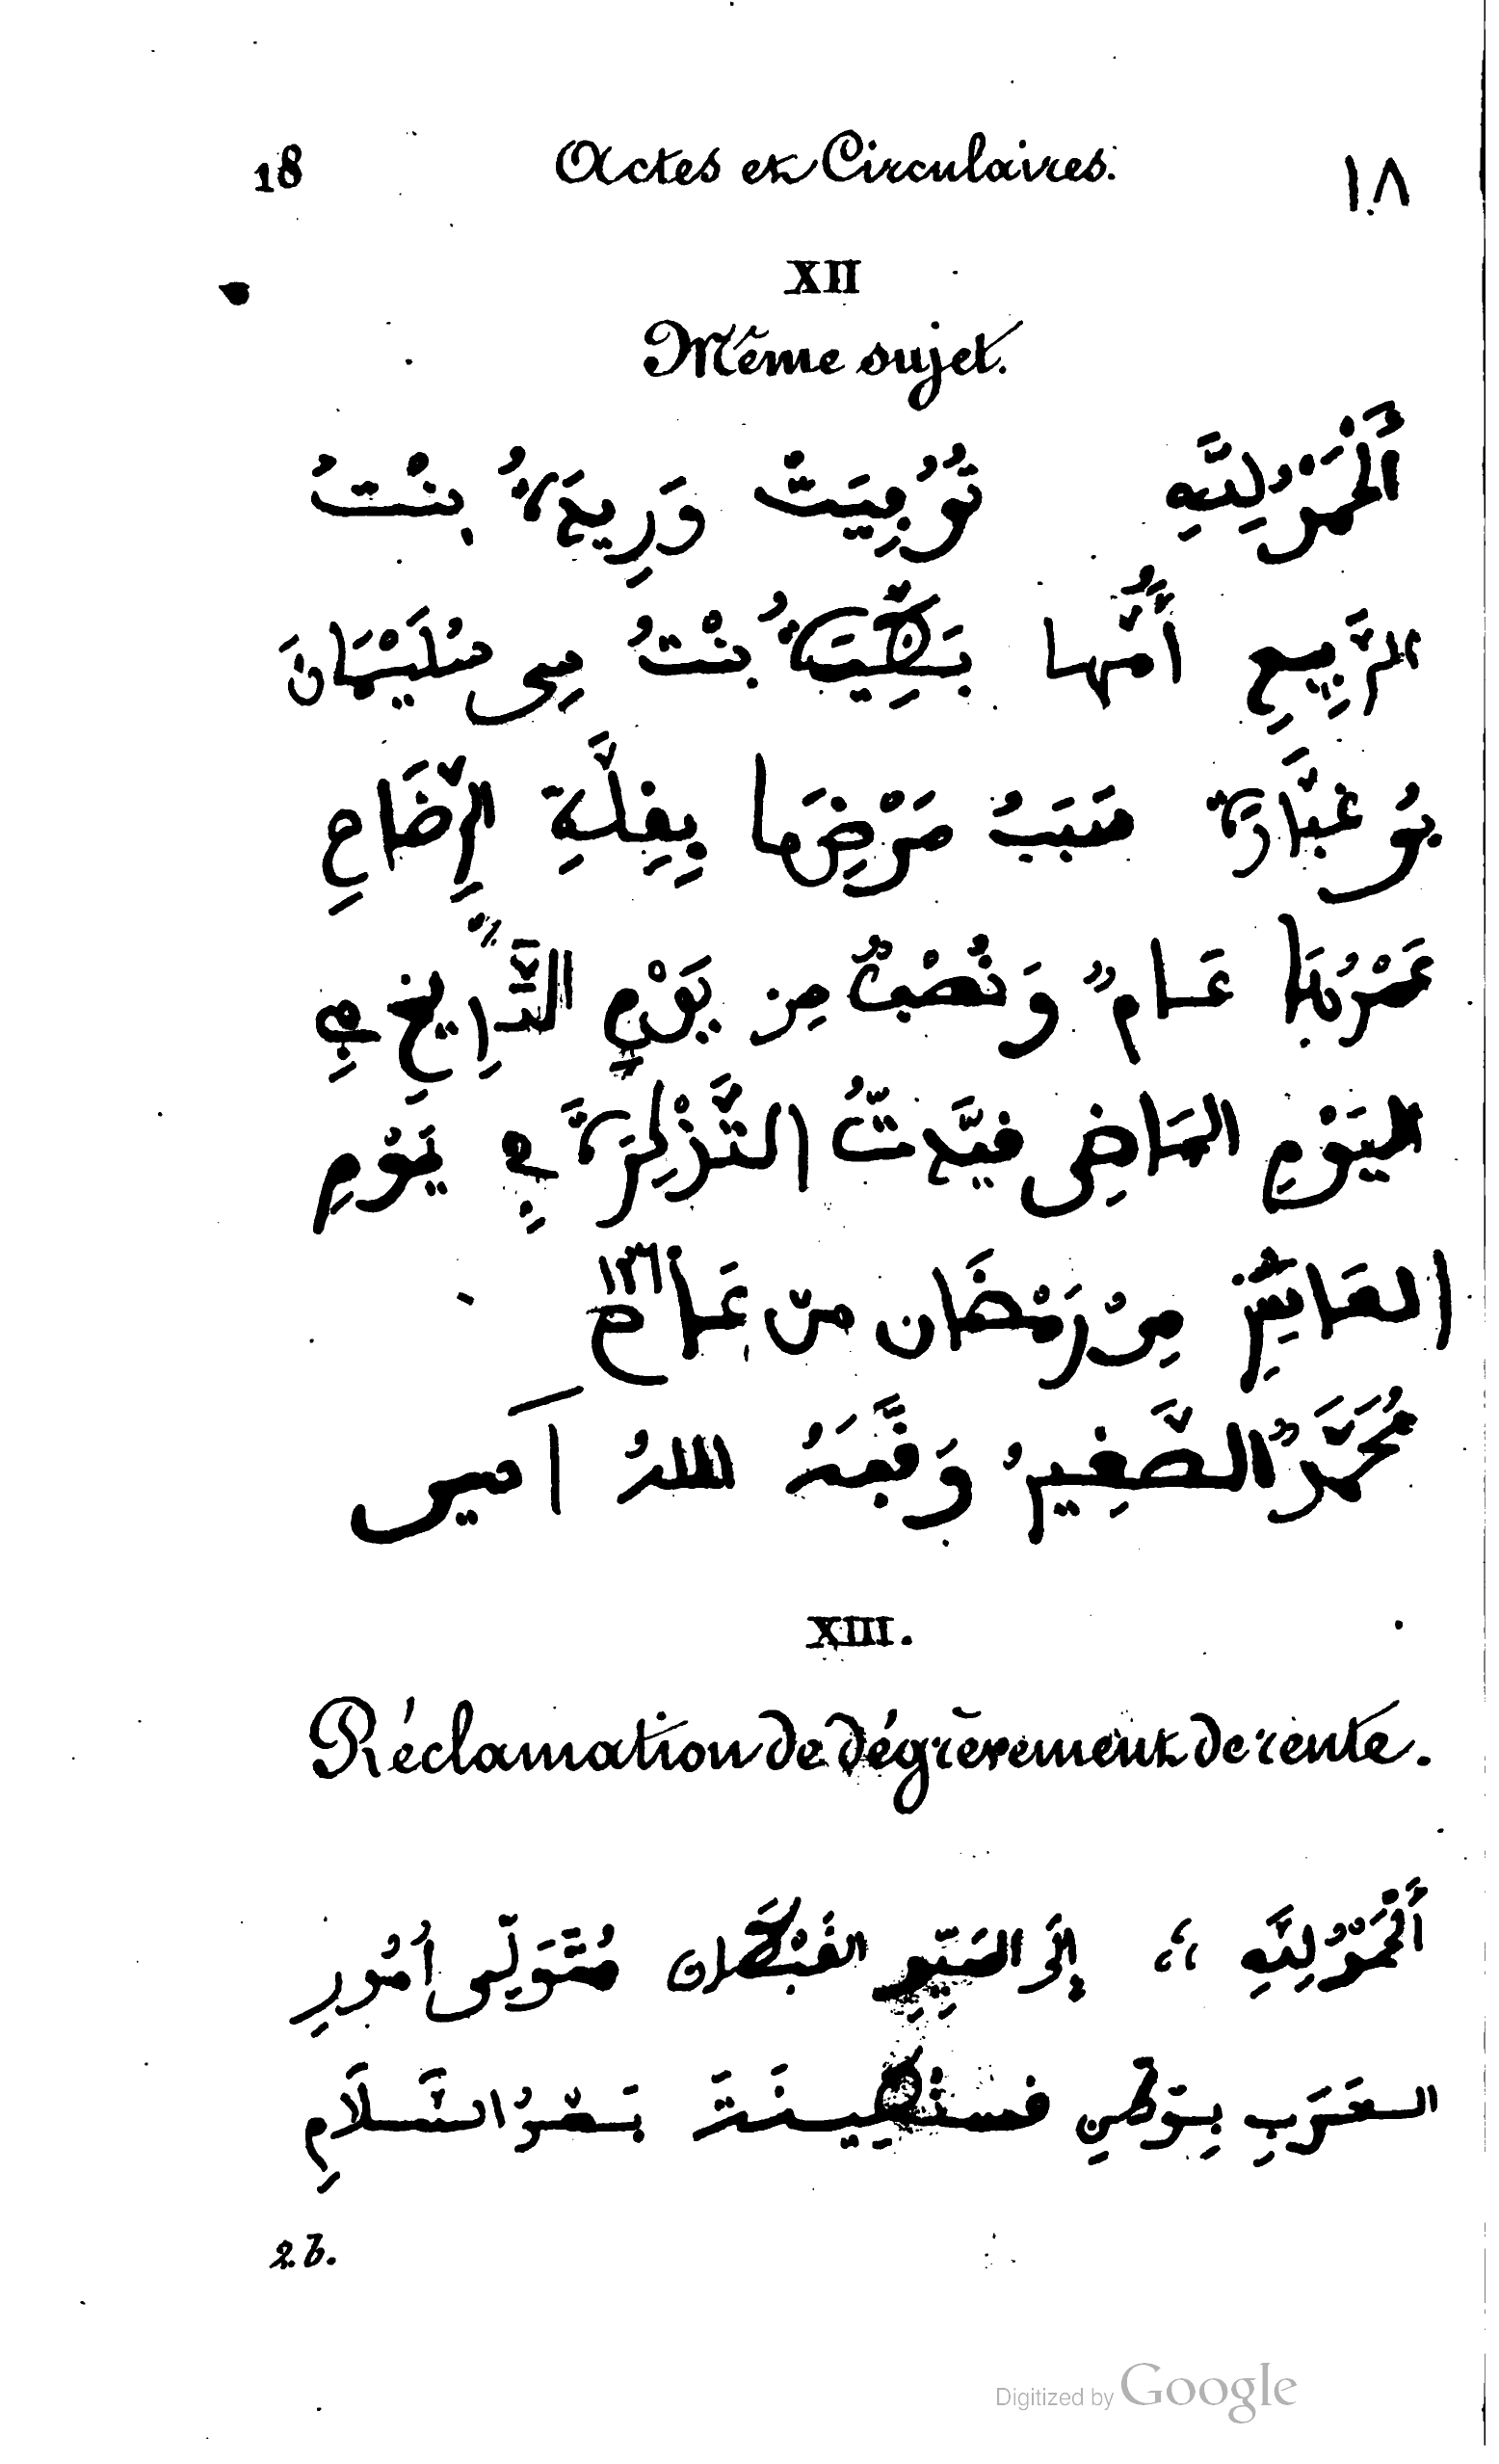 18 Actes et Circulaires. ١٨
XII
Même sujet.
اَلْحَمْدُ لِلَّهِ تُوُفِّيَتْ وَرِيدَةُ بِنْتُ
الرَّبِيعِ أُمُّهَا بنْتُ سِى سُلَيْمَانَ
بُو غَبَّارَة سَبَبُ مَرَضِهَا بِقِلَّةِ الرِّضَاعِ
عُمْرُهَا عَامٌ وَنُصْبٌ مِن يَوْمِ التَّارِيخِ فِي
اليَوْمِ المَاضِى قيّدتُ التَّذْكِرَةَ فِي يَوْمِ
العَاشِرِ مِنْ رَمَضَان منْ عَام
مُحَمَّدٌ الصَّغِيرُ وَفَّقَهُ اللهُ آمين
XIII.
Réclamation de dégrèvement de rente.
اَلْحَمْدُ لِلَّهِ ،، إِلَى السَيِّدِ القَبْطَان مُتَوَلِّى أُمُورِ
العَرَبِ بِوَطَنِ قسنْطِينَةَ بَعْدُ السَّلَامِ
2 b.
Digitized by Google